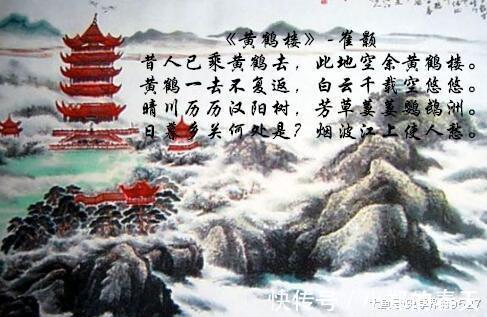 《黄鹤楼》-崔颢
昔人已乘黄鹤去，此地空余黄鹤楼。
黄鹤一去不复返，白云千载空悠悠。
晴川历历汉阳树，芳草萋萋鹦鹉洲。
日暮乡关何处是？烟波江上使人愁。
快传号/